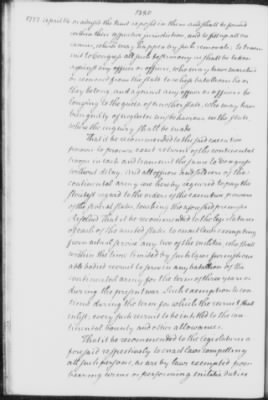 1380
1777
within their respective jurisdiction, and to fill up all va
cancies, which may happen by such removals; to transm
it to Congress all such testimony as shall be taken
against any officer or officers, who may been
or removed from the state to whose battalions he or
they belong and against any officer or officers be
longing to the quota of another state, who may have
been guilty of neglect or misbehaviour in the state,
where the inquiry shall be made
That it be recommended to the said executive
powers to procure exact returns of the continental
troops in each and transmit the same to Congress
without delay. And all officers and soldiers of the
continental army are hereby required to pay the
strictest regard to the orders of the executive powers
of the several states, touching the aforesaid premises
Resolved That it be recommended to the legislatures
of each of the united states to enact laws exempting
from actual service any two of the militia, who shall
within the time limited by such laws furnish one
able bodied recruit to serve in any battalion of the
continental army for the term of three years or
during the present war. Such exemption to con
tinue during the term for which the recruit shall
enlist, every such recruit to be entitled to the con
tinental bounty and other allowances.
That it be recommended to the legislatures a
foresaid respectively to enact laws compelling
all such persons, as are by laws exempted from
bearing arms or performing militia duties